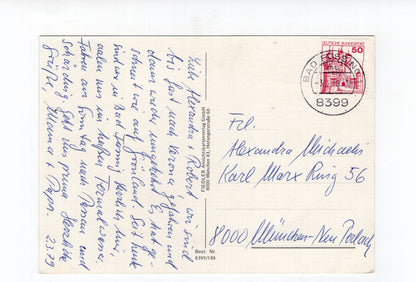 Liebe Alexandra + Robert wir sind
bis fast nach Verona gefahren und
dann wieder umgekehrt. Es hat ge-
schneit wie auf Grönland. Seit heute
sind wir in Bad Füssing
aalen uns im heißen Thermalwasser.
Fahren am Sonntag nach Passau und
Schärding. Geht uns prima. Herzliche
Grüße, Mama + Papa. 2.3.79
FIEDLER Ansichtskartenverlag GmbH
8000 München 83,
Best. Nr.
8399/186
DEUTSCHE BUNDESPOST
50
BAD FÜSSING
8399
Frl.
Alexandra Michaelis
Karl Marx Ring 56
8000 München-Neu Perlach